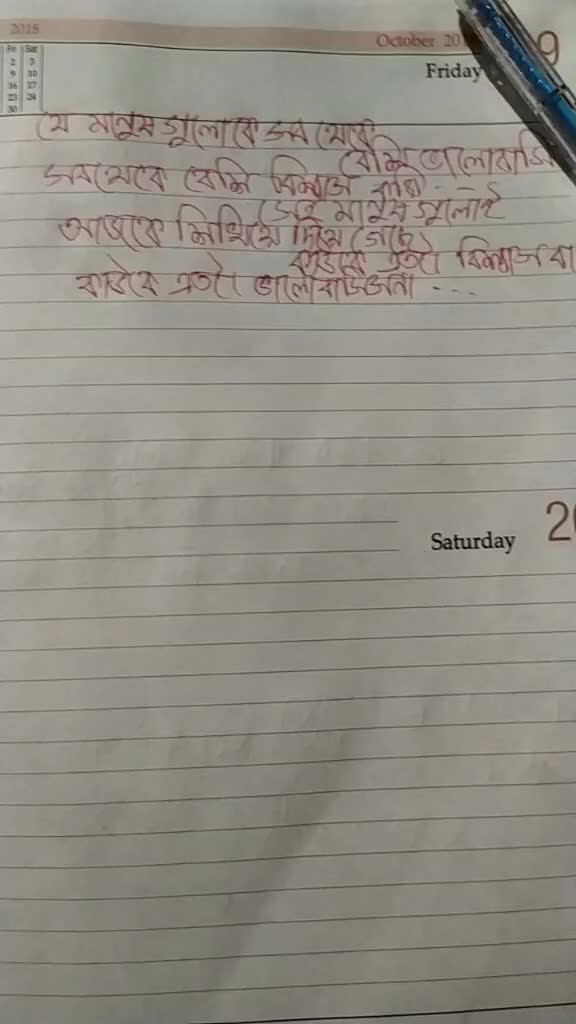 2015
October 20
9
Friday
Fri Sat
2 3
9 10
16 17
23 24
30
যে মানুষ গুলোকে সব থেকে
বেশি ভালোবাসি
সবথেকে বেশি বিশ্বাস করি..
সেই মানুষ গুলোই
আজকে শিখিয়ে দিয়ে গেছে
কাউকে এতটা বিশ্বাস বা
কাউকে এতটা ভালোবাসতে না ...
Saturday
2